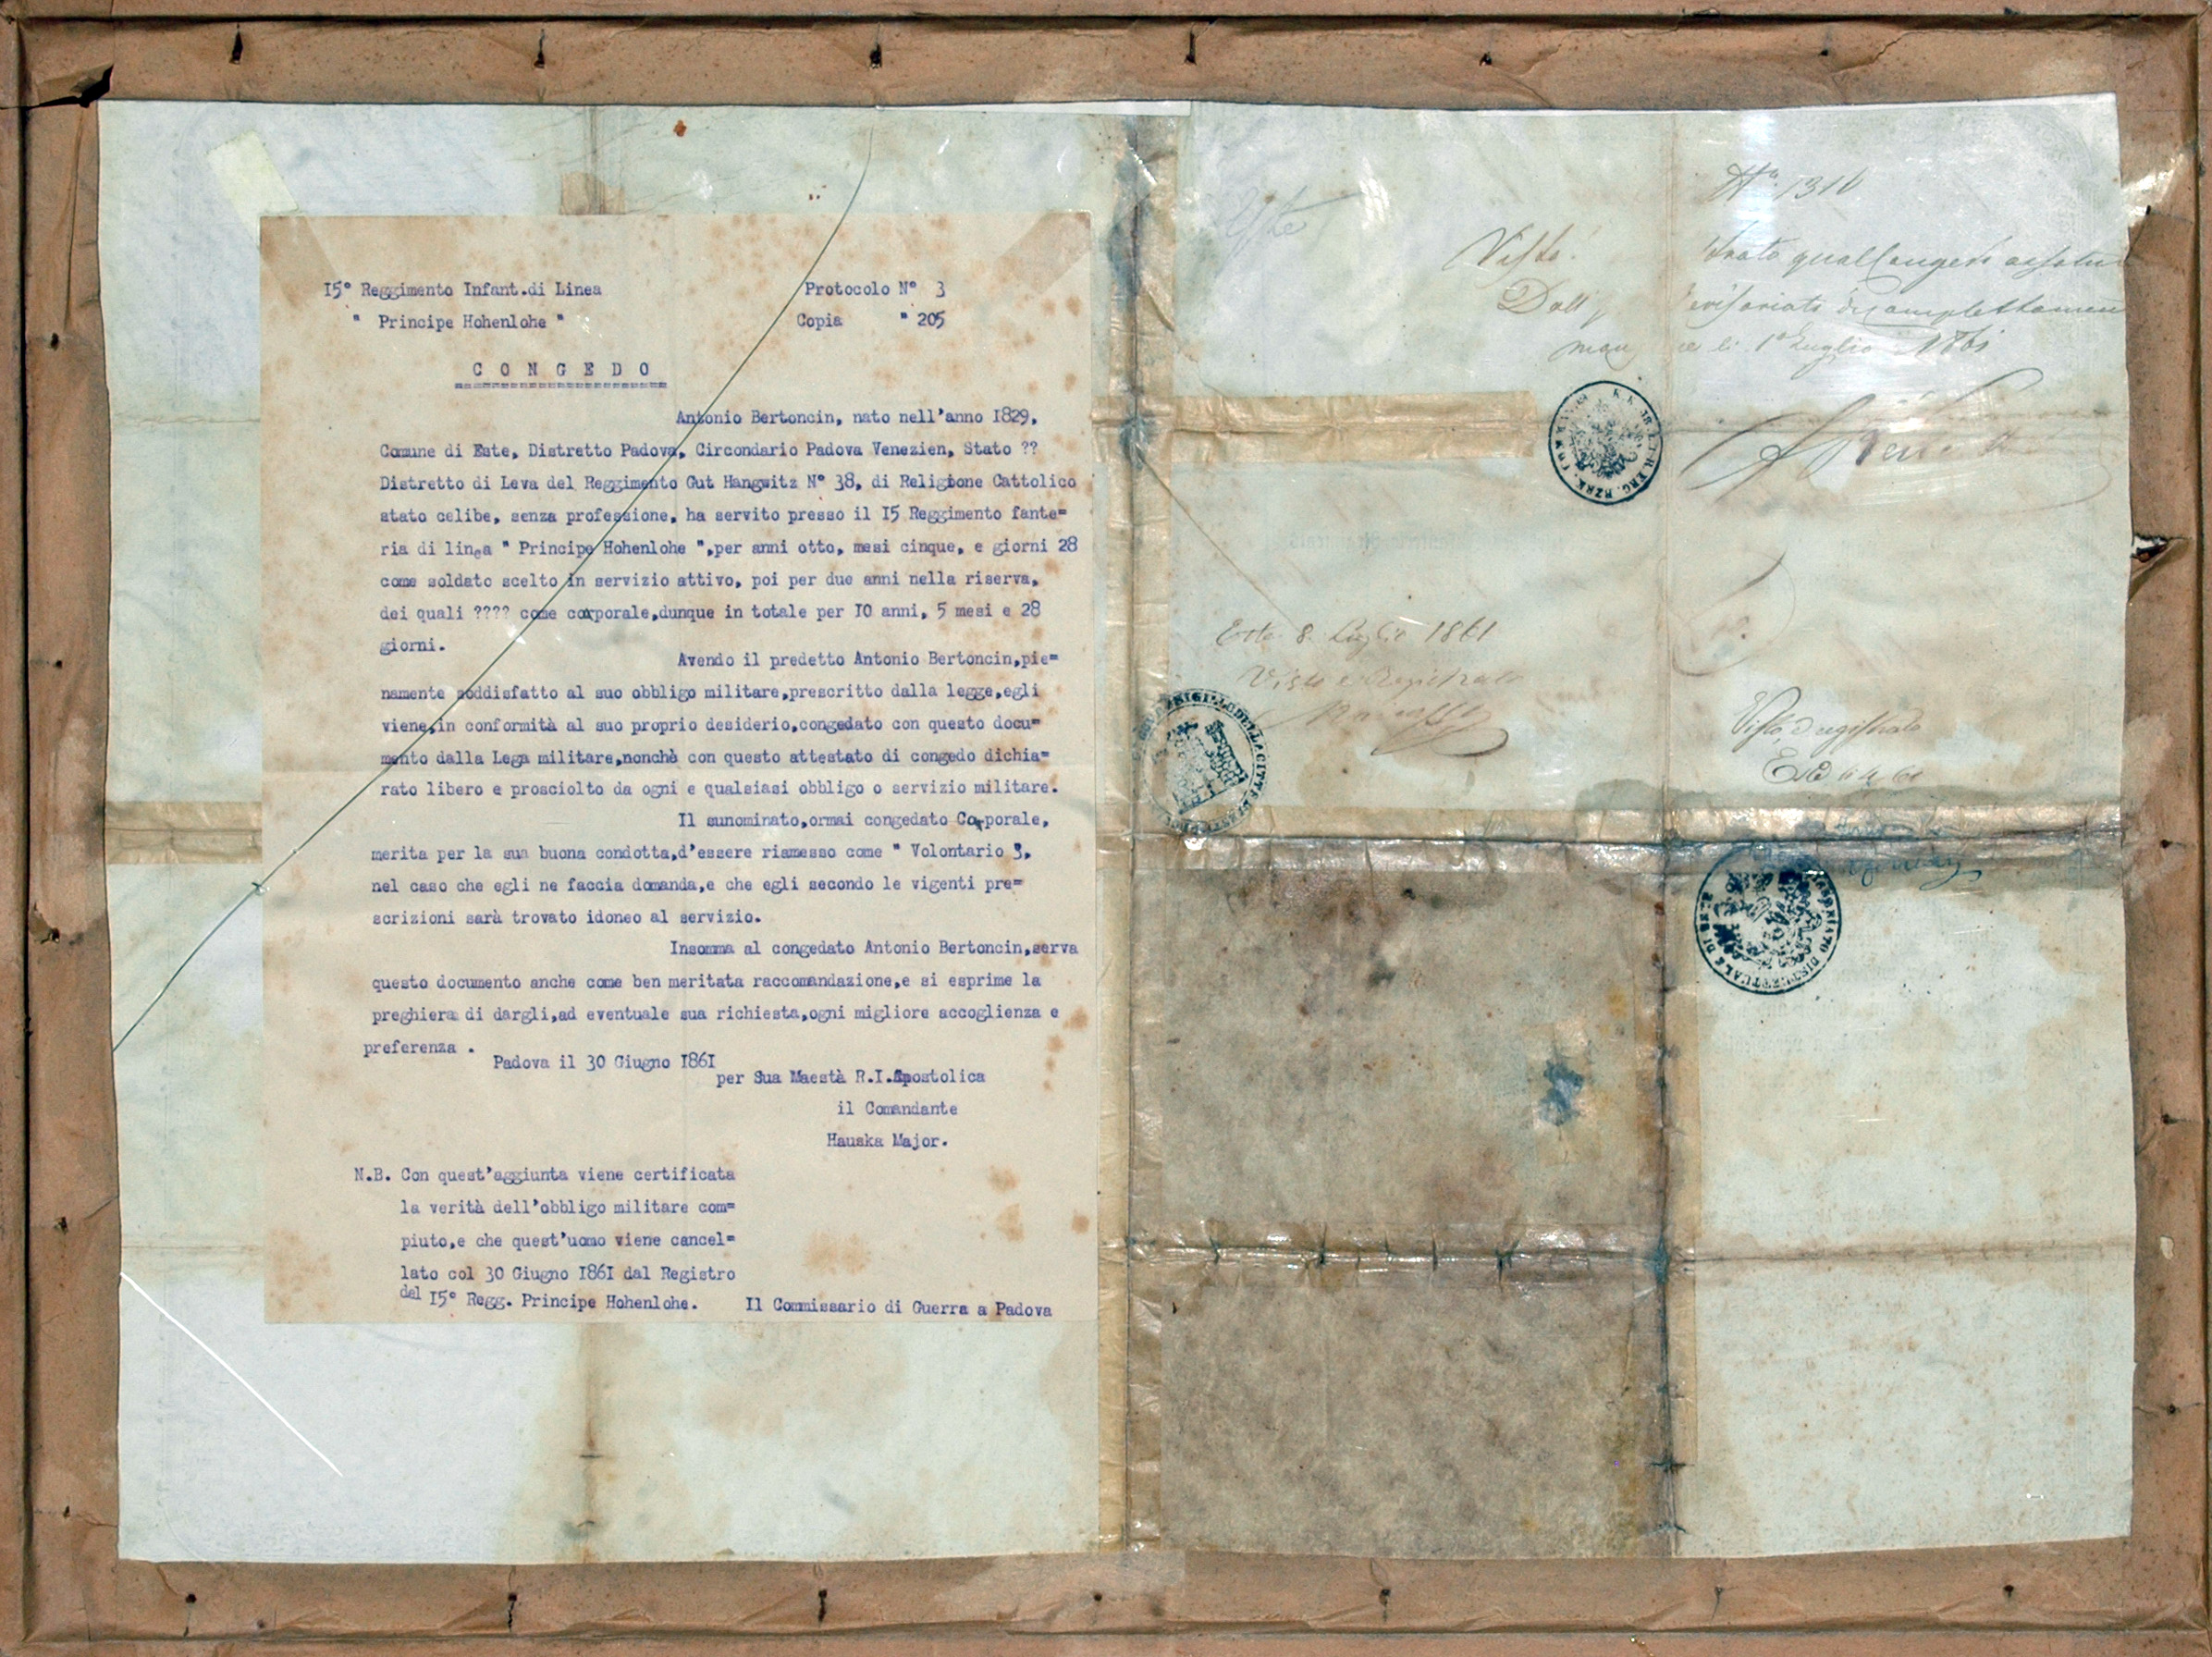 15° Reggimento Infant.di Linea
" Principe Hohenlohe "
Protocolo N° 3
Copia " 205
C O N G E D O
Antonio Bertoncin, nato nell'anno 1829,
Comune di Este, Distretto Padova, Circondario Padova Venezien, Stato ??
Distretto di Leva del Reggimento Gut Hangwitz N° 38, di Religione Cattolico
stato celibe, senza professione, ha servito presso il 15 Reggimento fante=
ria di linea " Principe Hohenlohe ",per anni otto, mesi cinque, e giorni 28
come soldato scelto in servizio attivo, poi per due anni nella riserva,
dei quali ???? come corporale,dunque in totale per 10 anni, 5 mesi e 28
giorni.
Avendo il predetto Antonio Bertoncin,pie=
namente soddisfatto al suo obbligo militare,prescritto dalla legge,egli
viene,in conformità al suo proprio desiderio,congedato con questo docu=
mento dalla Lega militare,nonchè con questo attestato di congedo dichia=
rato libero e prosciolto da ogni e qualsiasi obbligo o servizio militare.
Il sunominato,ormai congedato Corporale,
merita per la sua buona condotta,d'essere riamesso come " Volontario 3,
nel caso che egli ne faccia domanda,e che egli secondo le vigenti pre=
scrizioni sarà trovato idoneo al servizio.
Insomma al congedato Antonio Bertoncin,serva
questo documento anche come ben meritata raccomandazione,e si esprime la
preghiera di dargli,ad eventuale sua richiesta,ogni migliore accoglienza e
preferenza .
Padova il 30 Giugno 1861
per Sua Maestà R.I.Apostolica
il Comandante
Hauska Major.
N.B. Con quest'aggiunta viene certificata
la verità dell'obbligo militare com=
piuto,e che quest'uomo viene cancel=
lato col 30 Giugno 1861 dal Registro
del 15° Regg. Principe Hohenlohe.
Il Commissario di Guerra a Padova
Este
N° 1310
Visto!
qual Congedo
Dall
li 1° Luglio 1861
Este 8 Luglio 1861
Visto e Registrato
SIGILLO DELLA CITTÀ DI ESTE
Visto, e registrato
DISTRETTUALE DI ESTE